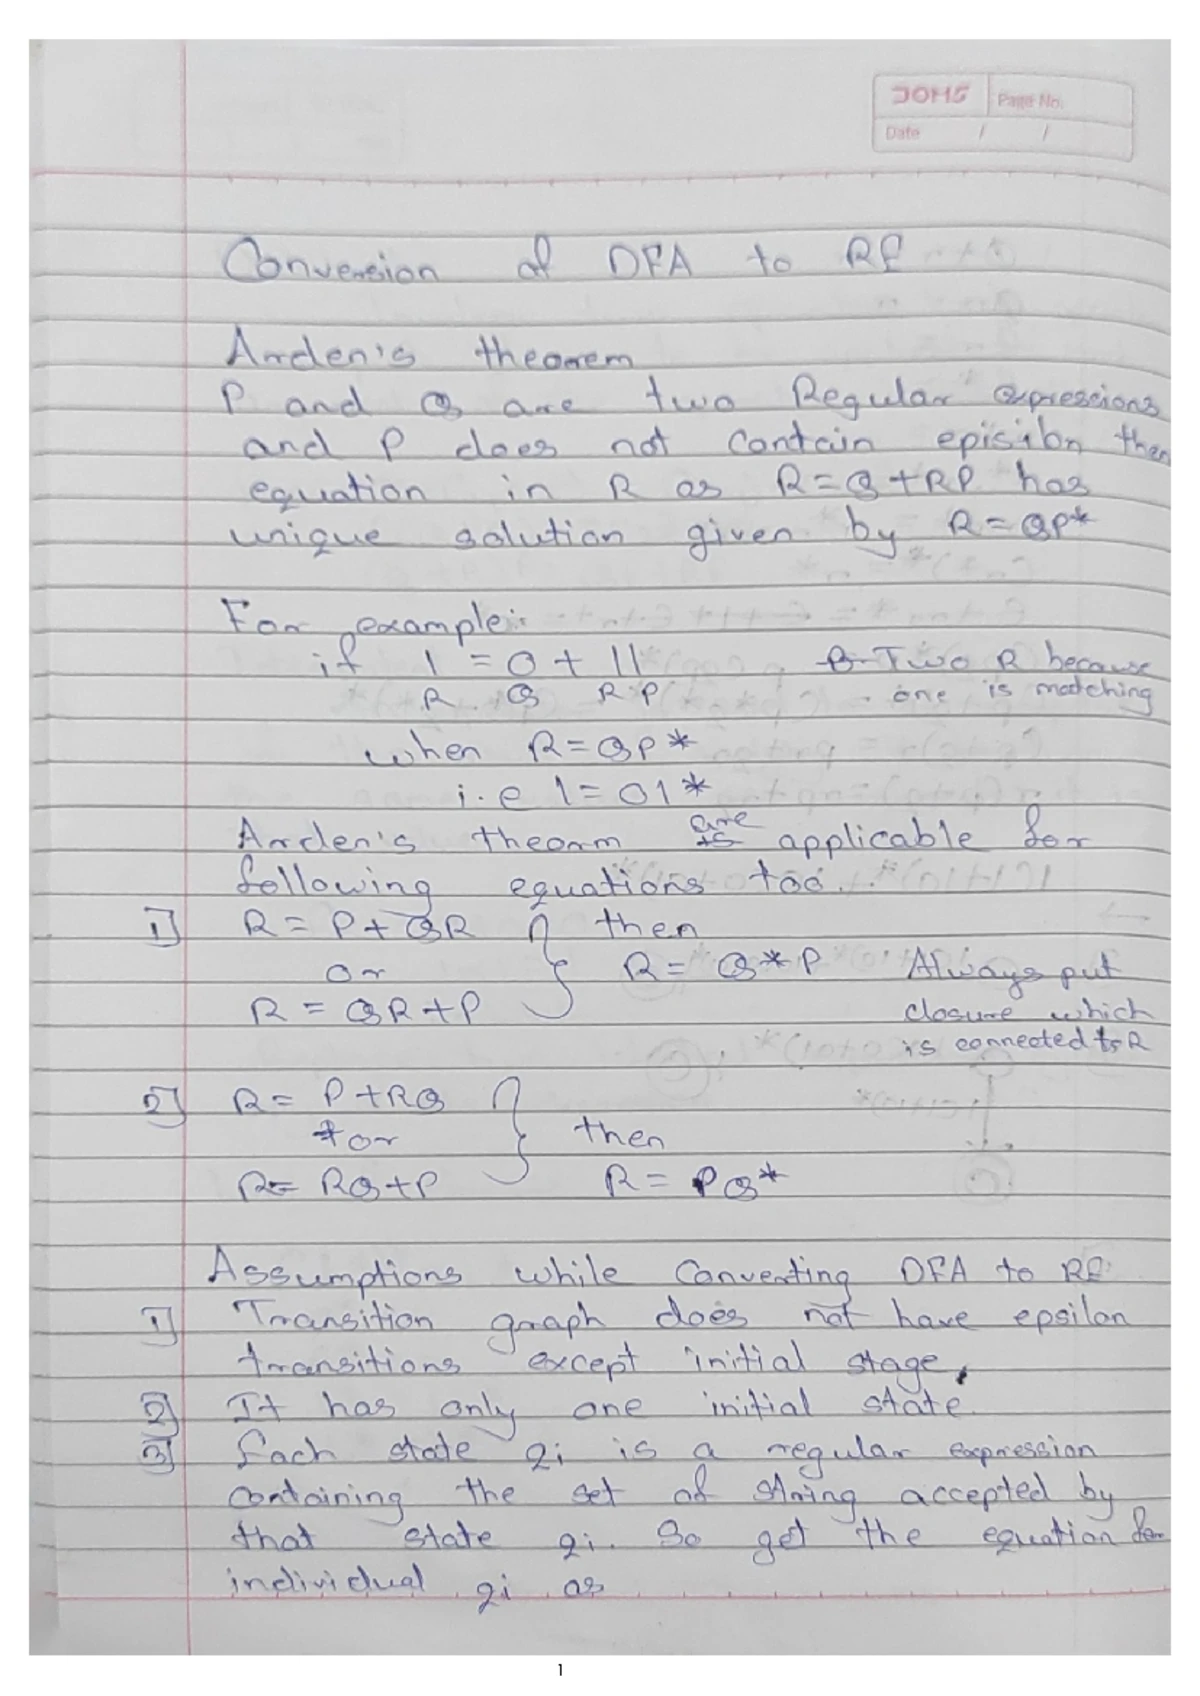 JOMS Page No.
Date / /
Conversion of DFA to RE
Arden's theorem
P and Q are two Regular expressions
and P does not contain episibn then
equation in R as R=Q+RP has
unique solution given by R=QP*
For example:
if 1 = 0 + 11 Two R because
R Q R P one is matching
when R=QP*
i.e 1=01*
Arden's theorm are applicable for
following equations too.
1] R= P+QR } then
or R= Q*P Always put
R = QR+P closure which
is connected to R
2] R= P+RQ }
or then
R= RQ+P R= PQ*
Assumptions while Converting DFA to RE
1] Transition graph does not have epsilon
transitions except initial stage,
2] It has only one initial state.
3] Each state qi is a regular expression
containing the set of string accepted by
that state qi. So get the equation for
individual qi as
1